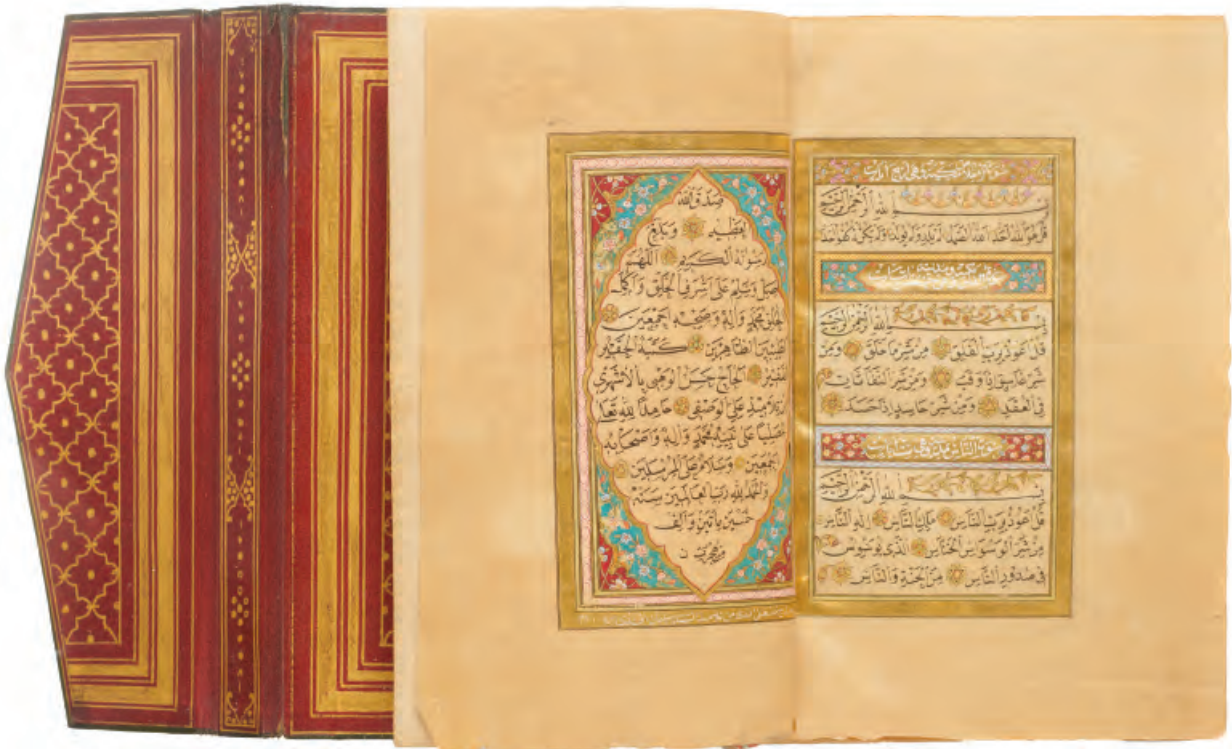 سورة مكية وهي اربع آيات
بسم الله الرحمن الرحيم
قل هو الله احد الله الصمد لم يلد ولم يولد ولم يكن له كفوا احد
بسم الله الرحمن الرحيم
قل اعوذ برب الفلق من شر ما خلق ومن
شر غاسق اذا وقب ومن شر النفاثات
في العقد ومن شر حاسد اذا حسد
سورة الناس مدنية وهي ست آيات
بسم الله الرحمن الرحيم
قل اعوذ برب الناس ملك الناس اله الناس
من شر الوسواس الخناس الذى يوسوس
فى صدور الناس من الجنة والناس
صدق الله
العظيم وبلغ
رسوله الكريم اللهم
صل وسلم على اشرف الخلق واكمل
الخلق محمد وآله وصحبه اجمعين
الطيبين الطاهرين كتبه الحقير
الفقير الحاج حسن الوهبى بالاشهرى
تلاميذ على الوصفى حامدا لله تعالى
مصليا على نبيه محمد وآله واصحابه
اجمعين وسلام على المرسلين
والحمد لله رب العالمين سنة
خمسين مأتين والف
من هجرت